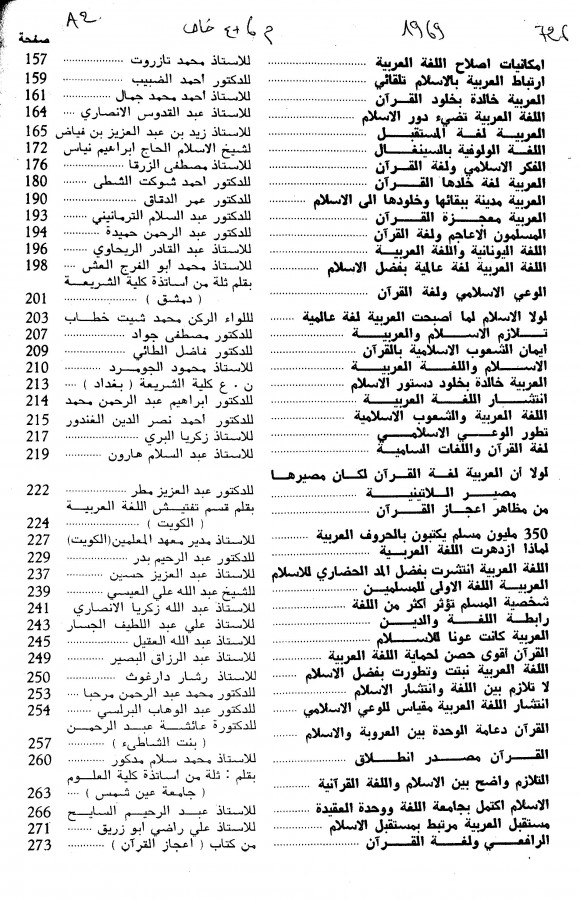 A2 م ٦+٤ خاص 1969 726
صفحة
امكانيات اصلاح اللغة العربية للاستاذ محمد تازروت 157
ارتباط العربية بالاسلام تلقائي للدكتور احمد الضبيب 159
العربية خالدة بخلود القرآن للاستاذ أحمد محمد جمال 161
اللغة العربية تضيء دور الاسلام للاستاذ عبد القدوس الانصاري 164
العربية لغة المستقبل للاستاذ زيد بن عبد العزيز بن فياض 165
اللغة الولوفية بالسينغال لشيخ الاسلام الحاج ابراهيم نياس 172
الفكر الاسلامي ولغة القرآن للاستاذ مصطفى الزرقا 176
العربية لغة خلدها القرآن للدكتور احمد شوكت الشطى 180
العربية مدينة ببقائها وخلودها الى الاسلام للدكتور عمر الدقاق 190
العربية معجزة القرآن للدكتور عبد السلام الترمانيني 193
المسلمون الاعاجم ولغة القرآن للدكتور عبد الرحمن حميدة 194
اللغة اليونانية واللغة العربية للاستاذ عبد القادر الريحاوي 196
اللغة العربية لغة عالمية بفضل الاسلام للاستاذ محمد أبو الفرج العش 198
الوعي الاسلامي ولغة القرآن بقلم ثلة من أساتذة كلية الشريعة
( دمشق ) 201
لولا الاسلام لما أصبحت العربية لغة عالمية للواء الركن محمد شيت خطاب 203
تلازم الاسلام والعربية للدكتور مصطفى جواد 207
ايمان الشعوب الاسلامية بالقرآن للدكتور فاضل الطائي 209
الاسلام واللغة العربية للاستاذ محمود الجومرد 210
العربية خالدة بخلود دستور الاسلام ن . ع كلية الشريعة ( بغداد ) 213
انتشار اللغة العربية للدكتور ابراهيم عبد الرحمن محمد 214
اللغة العربية والشعوب الاسلامية للدكتور أحمد نصر الدين الغندور 215
تطور الوعي الاسلامي للاستاذ زكريا البري 217
لغة القرآن واللغات السامية للاستاذ عبد السلام هارون 219
لولا أن العربية لغة القرآن لكان مصيرها
مصير اللاتينية للدكتور عبد العزيز مطر 222
من مظاهر اعجاز القرآن بقلم قسم تفتيش اللغة العربية
( الكويت ) 224
350 مليون مسلم يكتبون بالحروف العربية للاستاذ مدير معهد المعلمين(الكويت) 227
لماذا ازدهرت اللغة العربية للدكتور عبد الرحيم بدر 229
اللغة العربية انتشرت بفضل المد الحضاري للاسلام للاستاذ عبد العزيز حسين 237
العربية اللغة الاولى للمسلمين للشيخ عبد الله علي العيسى 239
شخصية المسلم تؤثر اكثر من اللغة للاستاذ عبد الله زكريا الانصاري 241
رابطة اللغة والدين للاستاذ علي عبد اللطيف الجسار 243
العربية كانت عونا للاسلام للاستاذ عبد الله العقيل 245
القرآن أقوى حصن لحماية اللغة العربية للاستاذ عبد الرزاق البصير 249
اللغة العربية نبتت وتطورت بفضل الاسلام للاستاذ رشار دارغوث 250
لا تلازم بين اللغة وانتشار الاسلام للدكتور محمد عبد الرحمن مرحبا 253
انتشار اللغة العربية مقياس للوعي الاسلامي للدكتور عبد الوهاب البرلسي 254
القرآن دعامة الوحدة بين العروبة والاسلام للدكتورة عائشة عبد الرحمن
( بنت الشاطىء ) 257
القرآن مصدر انطلاق للاستاذ محمد سلام مدكور 260
التلازم واضح بين الاسلام واللغة القرآنية بقلم : ثلة من أساتذة كلية العلوم
( جامعة عين شمس ) 263
الاسلام اكتمل بجامعة اللغة ووحدة العقيدة للاستاذ عبد الرحيم السايح 266
مستقبل العربية مرتبط بمستقبل الاسلام للاستاذ علي راضي ابو زريق 271
الرافعي ولغة القرآن من كتاب ( اعجاز القرآن ) 273